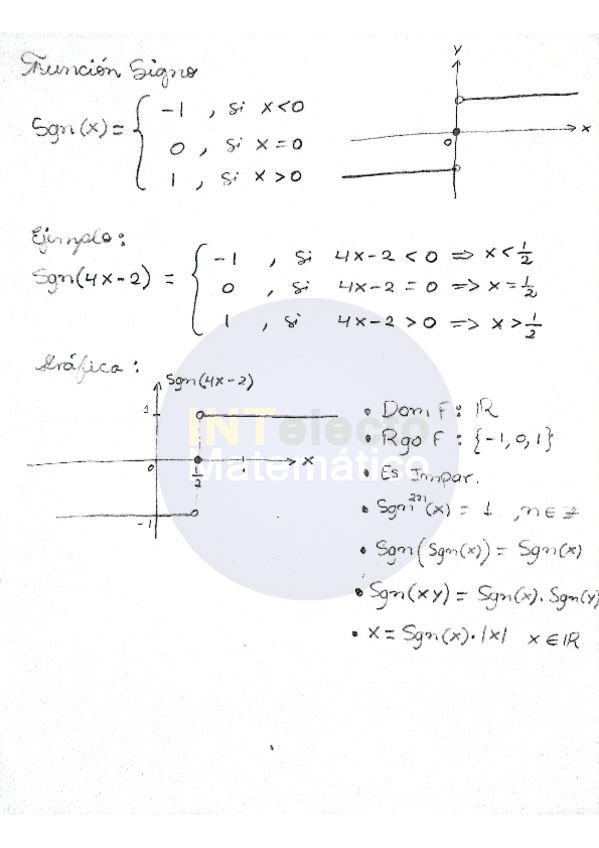 Función Signo
Sgn(x) = { -1 , si x<0
0 , si x=0
1 , si x>0
y
0
x
Ejemplo:
Sgn(4x-2) = { -1 , si 4x-2 < 0 => x < 1/2
0 , si 4x-2 = 0 => x = 1/2
1 , si 4x-2 > 0 => x > 1/2
Gráfica:
Sgn(4x-2)
1
0
1/2
1
x
-1
INTelecto
Matemático
• Dom F: ℝ
• Rgo F: {-1, 0, 1}
• Es Impar.
• Sgn²ⁿ(x) = 1 , n ∈ ℤ
• Sgn(Sgn(x)) = Sgn(x)
• Sgn(xy) = Sgn(x). Sgn(y)
• x = Sgn(x)·|x| x ∈ ℝ